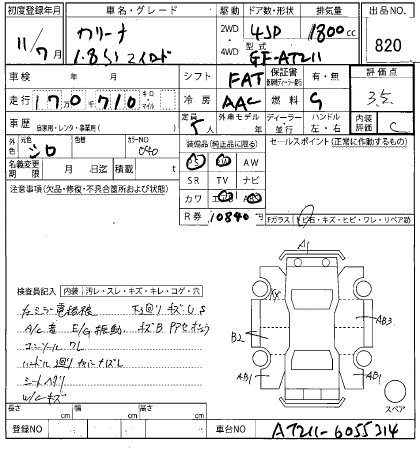 初度登録年月 車名・グレード 駆動 ドア数・形状 排気量 出品NO
11/7月 カリーナ 2WD 4SD 1800cc
1.8SI マイロード 4WD 型式 GF-AT211 820
車検 年 月 シフト FAT 保証書 有・無 評価点
走行 170万千710 キロ・マイル 冷房 AAC 燃料 G 3.5
車歴 自家用・レンタ・事業用( ) 定員 5人 外車モデル年 ディーラー・並行 ハンドル 左・右 内装評価 C
外色 元色 シロ 色替 カラーNO 040 装備品(純正品に限る) セールスポイント(正常に作動するもの)
PS PW AW
名義変更期限 月 日迄 積載量 t SR TV ナビ
注意事項(欠品・修復・不具合箇所および状態) カワ エアB
R券 10840円 Fガラス トビ石・キズ・ヒビ・ワレ・リペア跡
A1
検査員記入 内装 汚レ・スレ・キズ・キレ・コゲ・穴
下廻りキズU,S
A/C E/G振動 キズB
コンソールワレ
ハンドル廻り
シートヘタリ
W/Cキズ
B2 AB3
AB1 AB1
スペア
長さ cm 幅 cm 高さ cm
登録NO 車台NO AT211-6055314